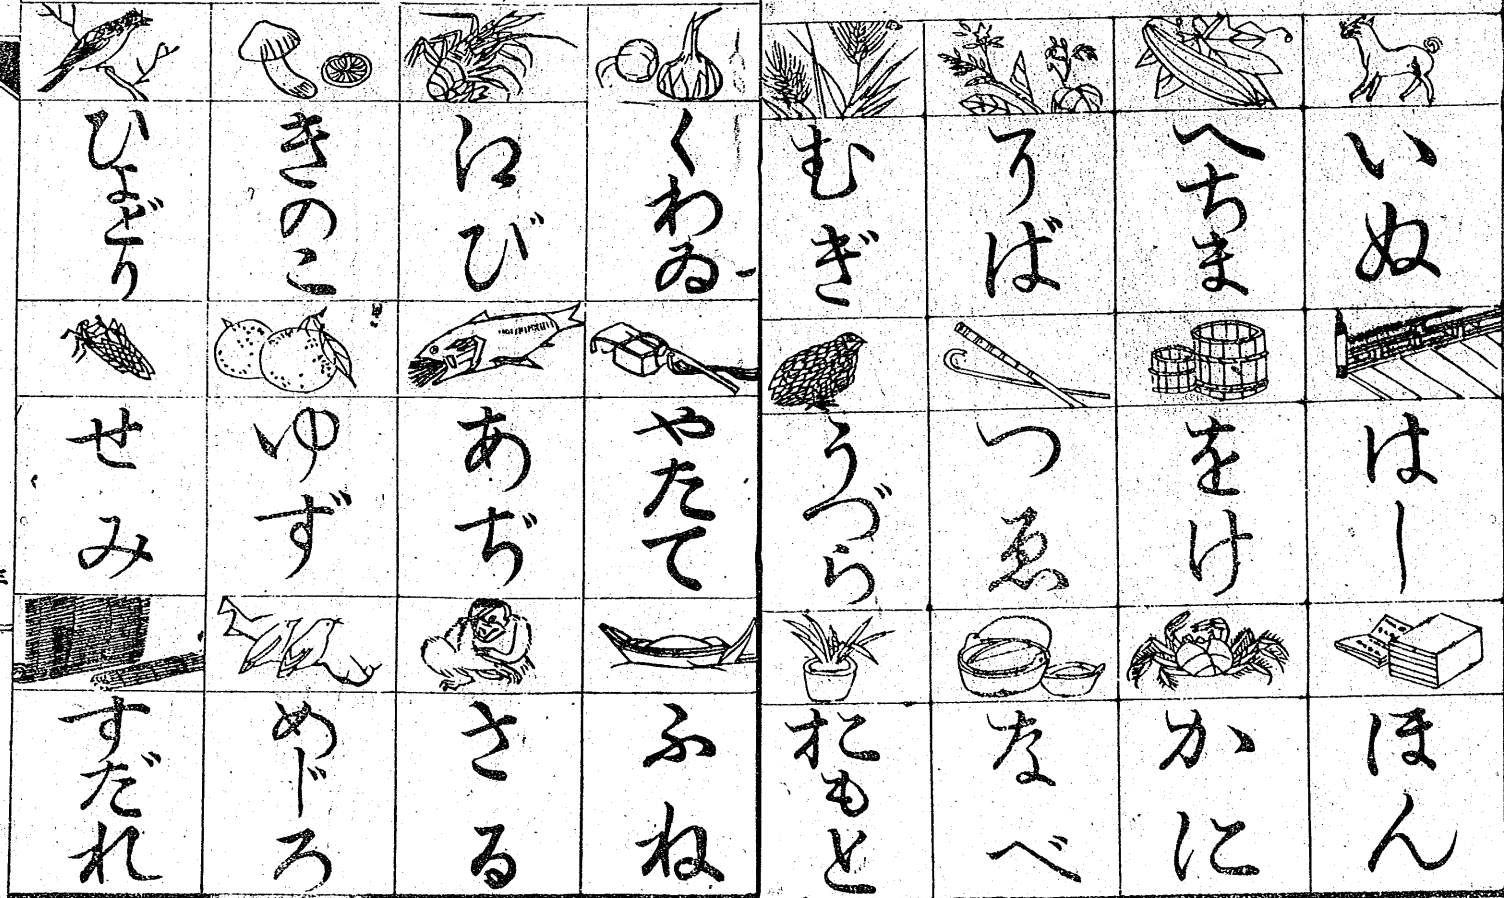 いぬ
はし
ほん
へちま
をけ
かに
そば
つゑ
なべ
むぎ
うづら
おもと
くわゐ
やたて
ふね
えび
あぢ
さる
きのこ
ゆず
めじろ
ひよどり
せみ
すだれ